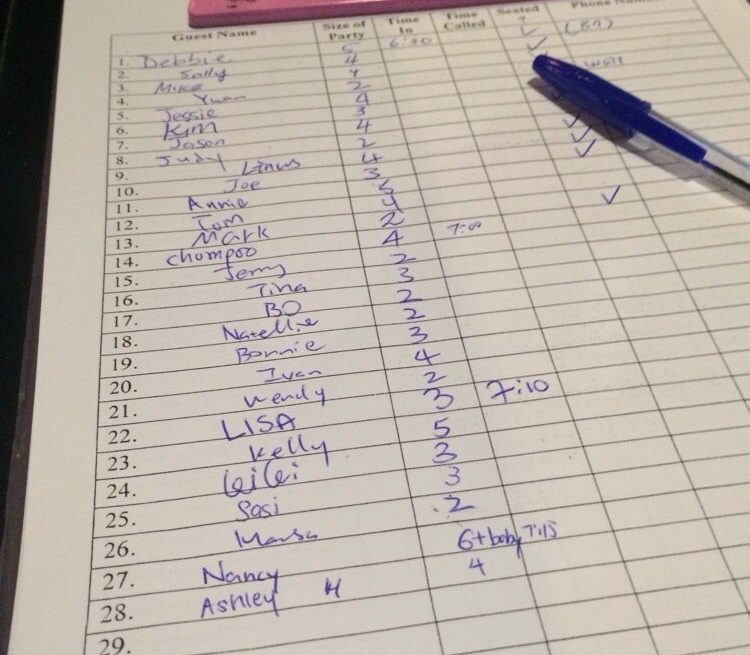 Guest Name Size of Party Time In Time Called Seated Phone
1. Debbie 5
2. Sally 4
3. Mike 4
4. Yuan 2
5. Jessie 4
6. Kim 3
7. Jason 4
8. Judy 2
9. Linus 4
10. Joe 3
11. Annie 5
12. Tom 4
13. Mark 2
14. chompoo 4 7:00
15. Jerry 2
16. Tina 3
17. BO 2
18. Natellie 2
19. Bonnie 3
20. Ivan 4
21. Wendy 2
22. LISA 3 7:10
23. Kelly 5
24. 3
25. Sosi 3
26. 2
27. Nancy 6+baby 7:15
28. Ashley 4
29.